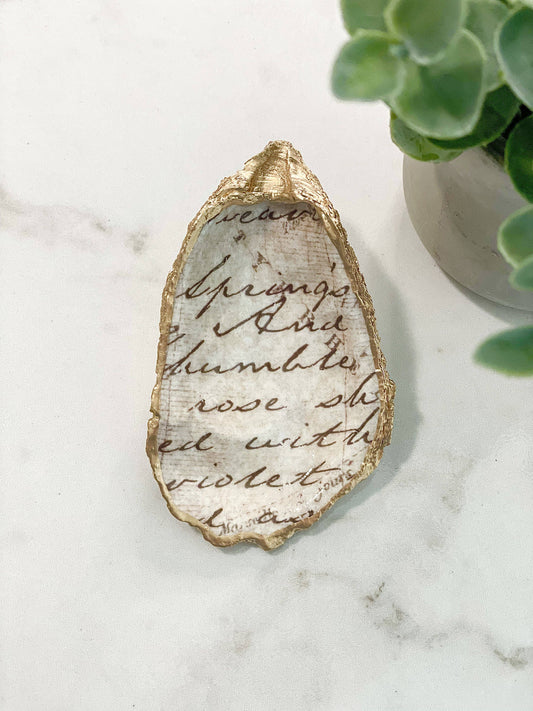 wear
Springs
And
humble
rose sh
ed with
violet